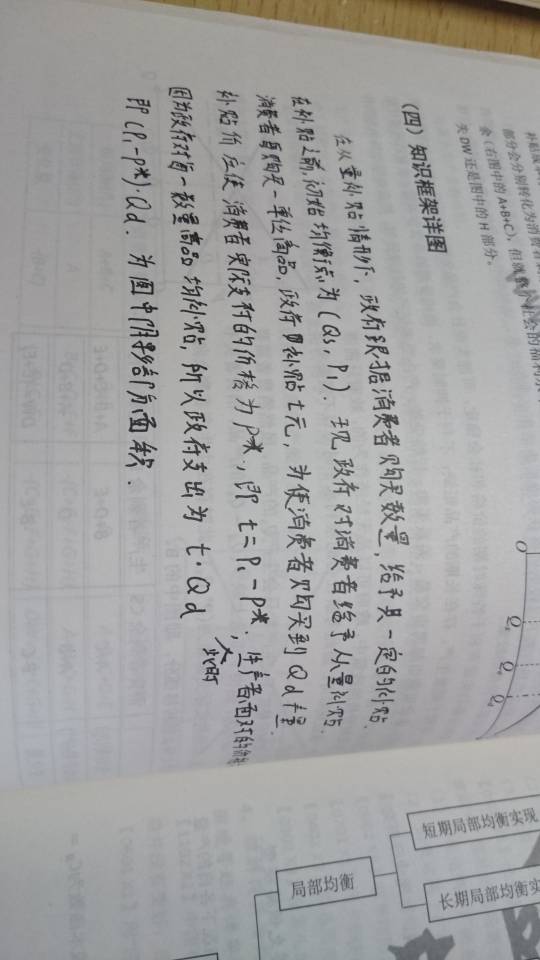 补贴
部分会分别转化为消费者
余（右图中的 A+B+C），但
社会的福利
失 DW 还是图中的 H 部分。
（四）知识框架详图
在从量补贴情形下，政府根据消费者购买数量，给予其一定的补贴.
在补贴之前，初始均衡点为（Qs，P1）. 现政府对消费者给予从量补贴.
消费者每购买一单位商品，政府即补贴t元，为使消费者购买到Qd产量.
补贴价应使消费者实际支付的价格为P*，即 t=P1-P*. 生产者面对的
此时
因为政府对每一数量商品均补贴，所以政府支出为 t·Qd
即（P1-P*）·Qd. 为图中阴影部分面积.
O
局部均衡
短期局部均衡实现
长期局部均衡实